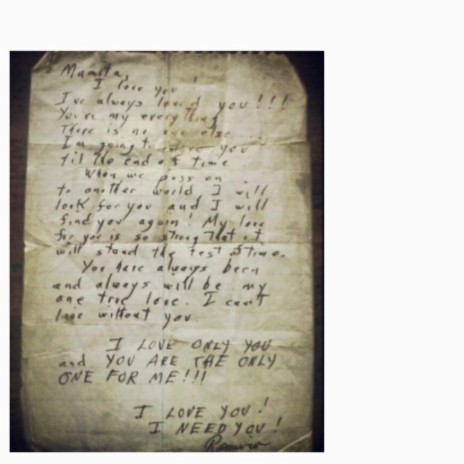 Mamita,
I love you!
I've always loved you!!!
You're my everything
There is no one else...
I'm going to you
til the end of time
When we pass on
to another world I will
look for you and I will
find you again! My love
for you is so strong that it
will stand the test of time.
You have always been
and always will be my
one true love. I can't
live without you
I LOVE ONLY YOU
and YOU ARE THE ONLY
ONE FOR ME!!!
I LOVE YOU!
I NEED YOU!
Ramiro